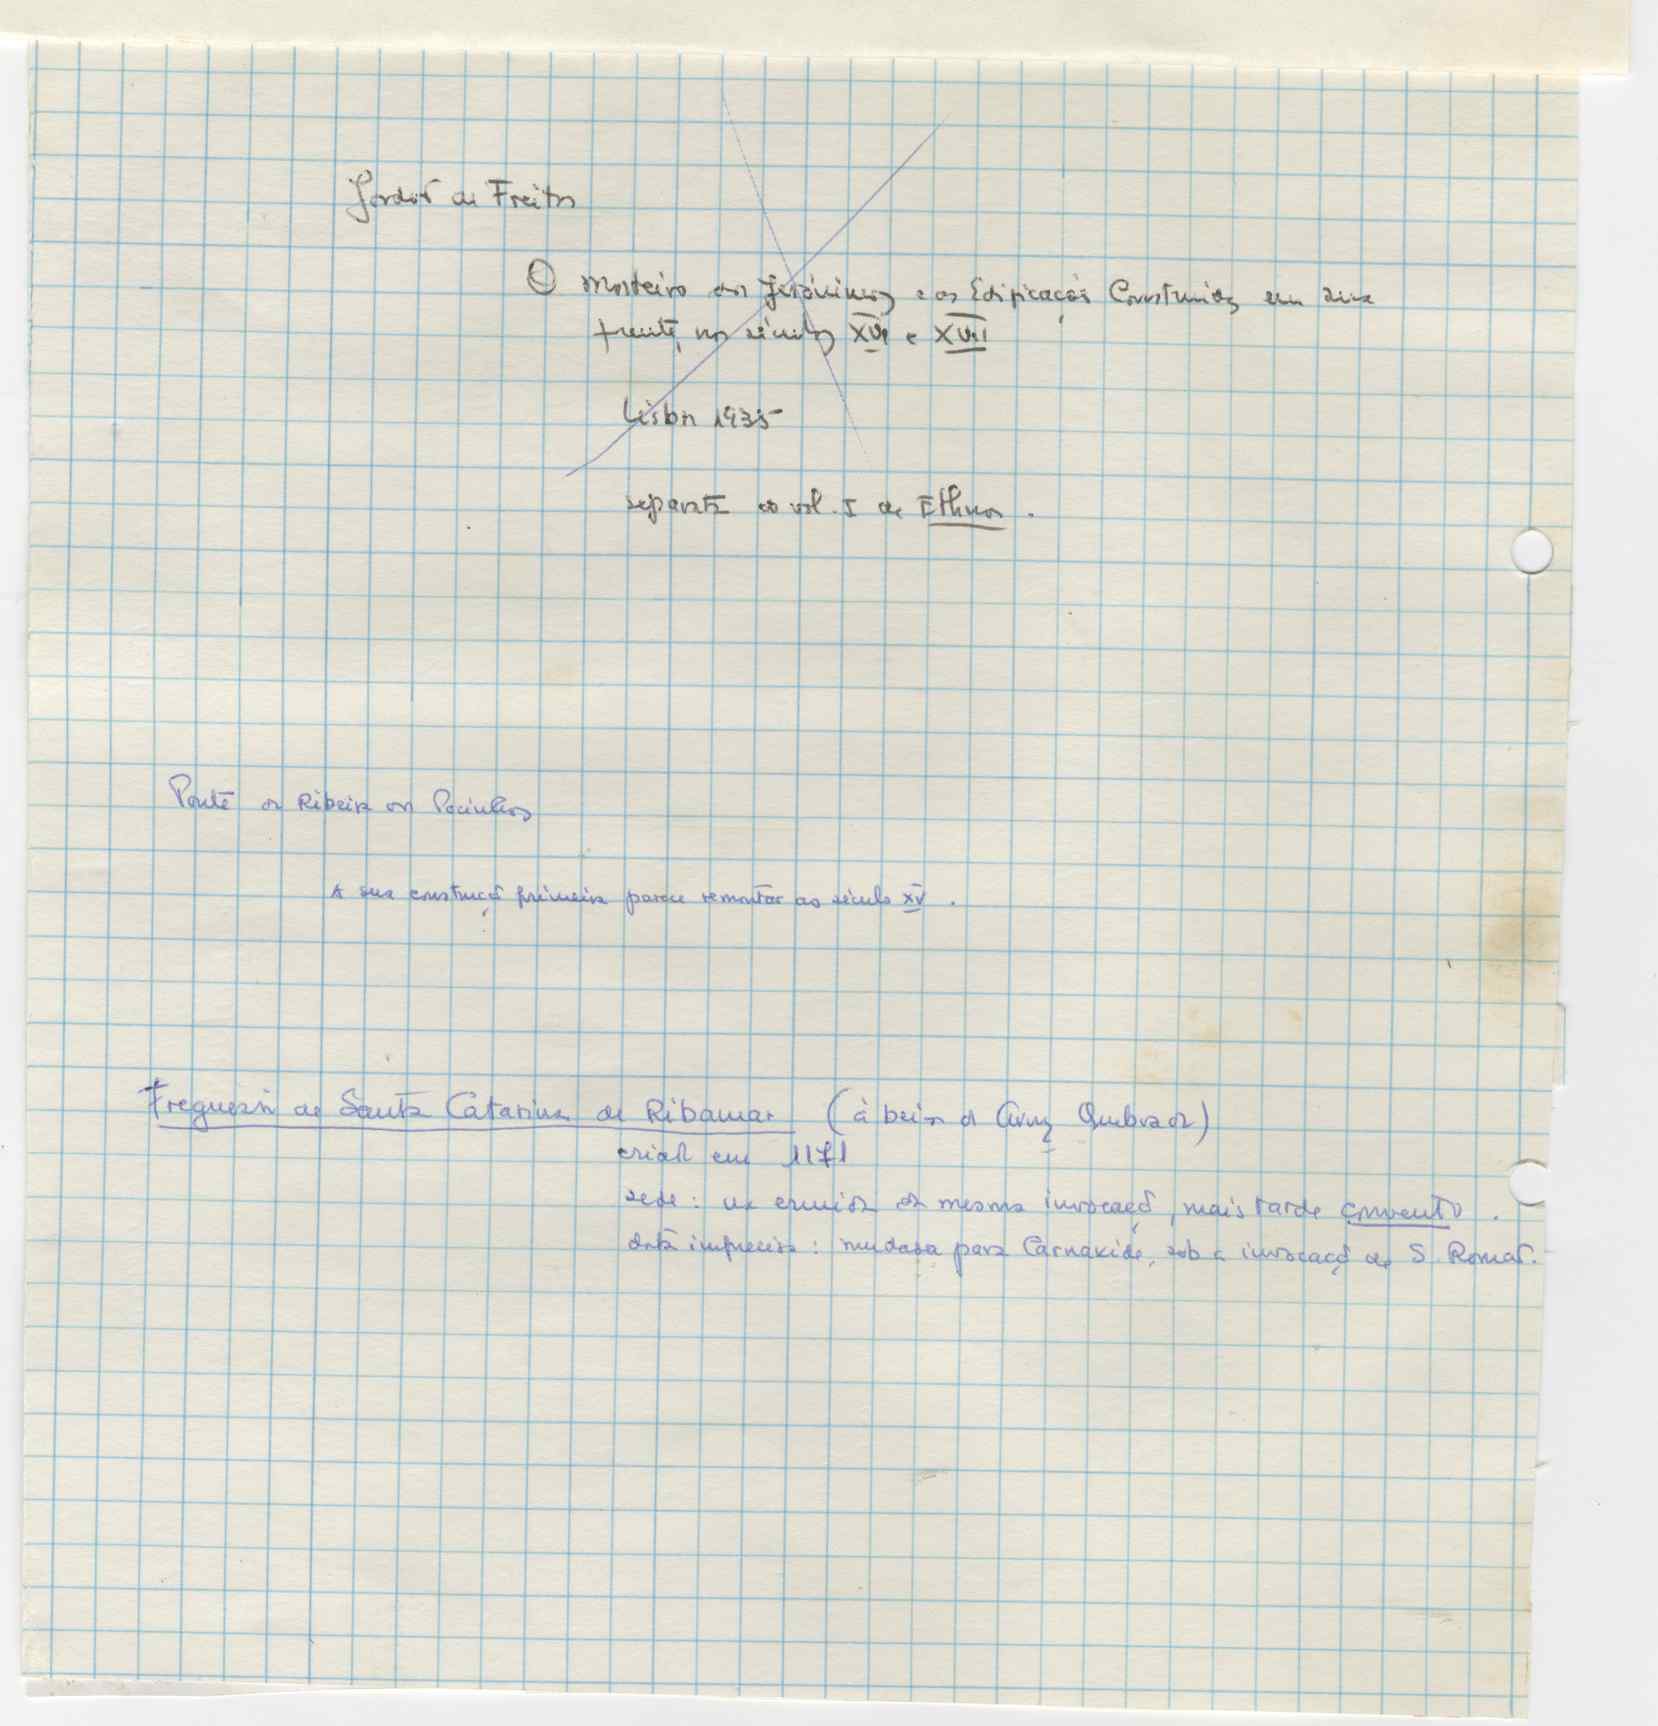 Jordão de Freitas
O Mosteiro dos Jerónimos e as Edificações Construidas em sua
frente, nos séculos XVI e XVIII
Lisboa 1935
separata do vol. I de Ethnos.
Ponte da Ribeira dos Pocinhos
A sua construção primeira parece remontar ao século XV.
Freguesia de Santa Catarina de Ribamar (à beira da Cruz Quebrada)
criada em 1171
sede: na ermida da mesma invocação, mais tarde convento.
data imprecisa: mudada para Carnaxide, sob a invocação de S. Romão.